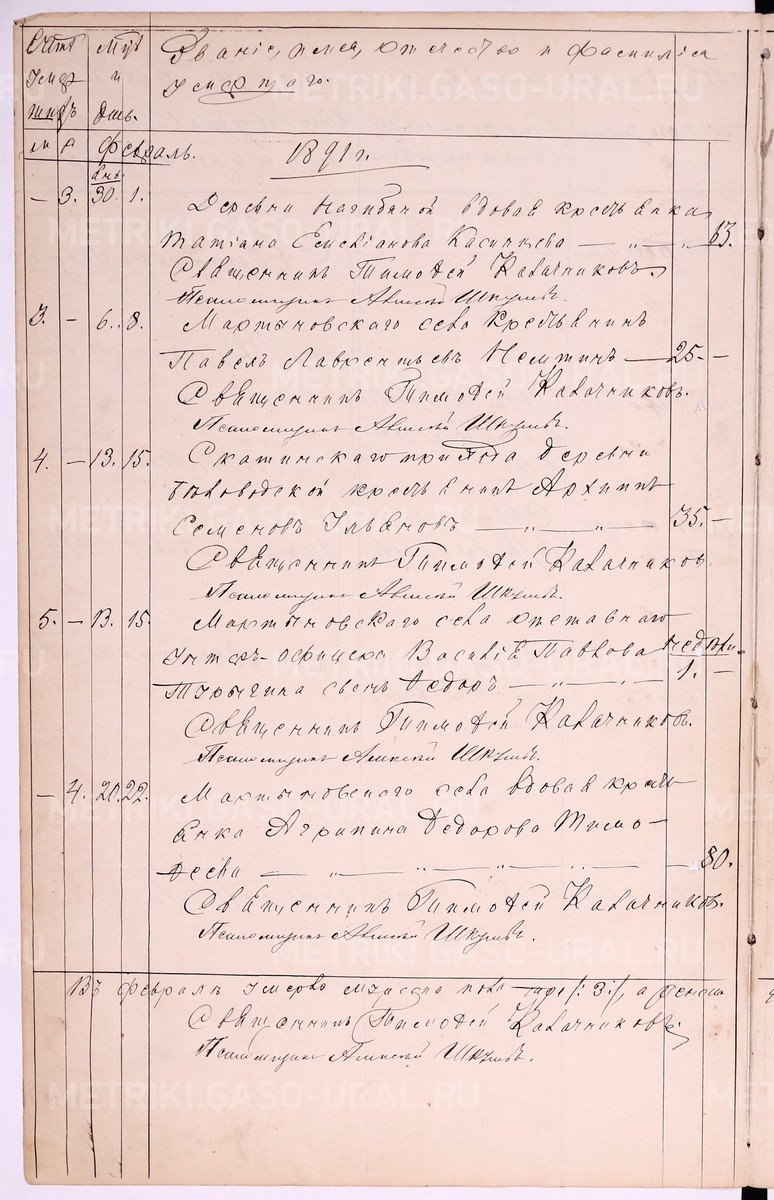 Счетъ умер шихъ
Мцъ и день.
Званіе, имя, отчество и фамилія
умершаго.
м ж Февраль. 1891 г.
янв.
— 3. 30. 1. Деревни Нагибиной вдовая крестьянка
Татіана Емельянова Касьянцева — „ — „ 63.
Священникъ Тимофей Калачниковъ.
Псаломщикъ Алексѣй
3. — 6. 8. Мартыновскаго села Крестьянинъ
Павелъ Лаврентьевъ — 25. —
Священникъ Тимофей Калачниковъ.
Псаломщикъ Алексѣй
4. — 13. 15. Скатинскаго прихода деревни
Бѣловодской крестьянинъ Архиппъ
Семеновъ Ульяновъ — „ — „ — 35. —
Священникъ Тимофей Калачников
Псаломщикъ Алексѣй
5. — 13. 15. Мартыновскаго села отставнаго
Унтеръ-офицера Василія Павлова недѣли
сынъ Федоръ — „ — „ — 1. —
Священникъ Тимофей Калачниковъ.
Псаломщикъ Алексѣй
— 4. 20. 22. Мартыновскаго села вдовая кресть
янка Агрипина Федорова Тимо-
феева — „ — „ — „ — „ — 80.
Священникъ Тимофей Калачниковъ.
Псаломщикъ Алексѣй
Въ февралѣ умерло мужеска пола /: 3 :/, а женска
Священникъ Тимофей Калачниковъ
Псаломщикъ Алексѣй
METRIKI.GASO-URAL.RU